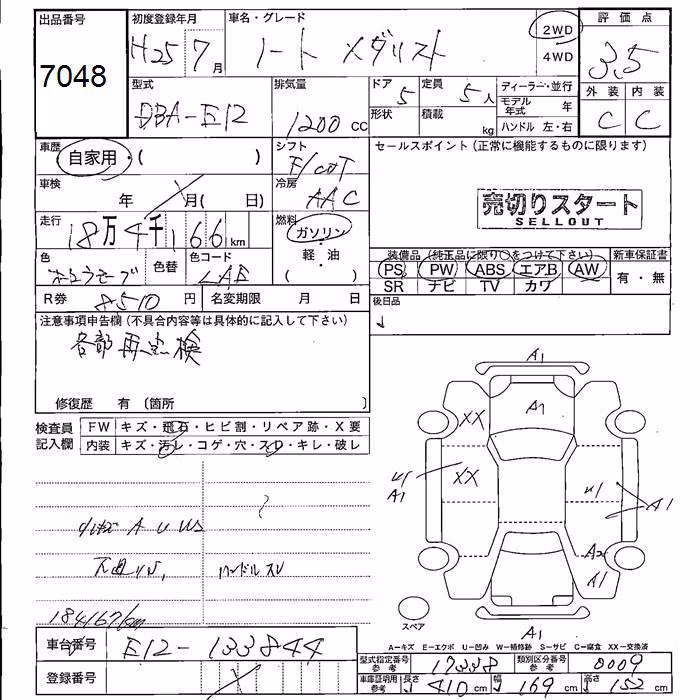 出品番号
7048
初度登録年月
H25 7月
車名・グレード
ノート メダリスト
2WD
4WD
評価点
3.5
外装 内装
C C
型式
DBA-E12
排気量
1200 cc
ドア 5
形状
定員 5人
積載 kg
ディーラー・並行
モデル年式 年
ハンドル 左・右
車歴
自家用・( )
シフト
F/CAT
車検
年 月( 日)
冷房
AAC
走行
18万4千166km
燃料
ガソリン・軽・油( )
色
色替
色コード
LAE
R券 8510円
名変期限 月 日
セールスポイント(正常に機能するものに限ります)
売切りスタート
SELLOUT
装備品(純正品に限り〇をつけて下さい)
PS PW ABS エアB AW
SR ナビ TV カワ
新車保証書
有・無
後日品
注意事項申告欄(不具合内容等は具体的に記入して下さい)
各部再点検
修復歴 有(箇所 )
検査員記入欄
FW キズ・飛石・ヒビ割・リペア跡・X要
内装 キズ・汚レ・コゲ・穴・スレ・キレ・破レ
小キズ A U US
ハンドルスレ
184167km
車台番号 E12-133844
登録番号
A1
A1
XX
XX
A1
A1
A2
A1
A1
スペア
A-キズ E-エクボ U-凹み W-補修跡 S-サビ C-腐食 XX-交換済
型式指定番号参考 17338
類別区分番号参考 0009
車庫証明用参考 長さ 410cm 幅 169cm 高さ 152cm